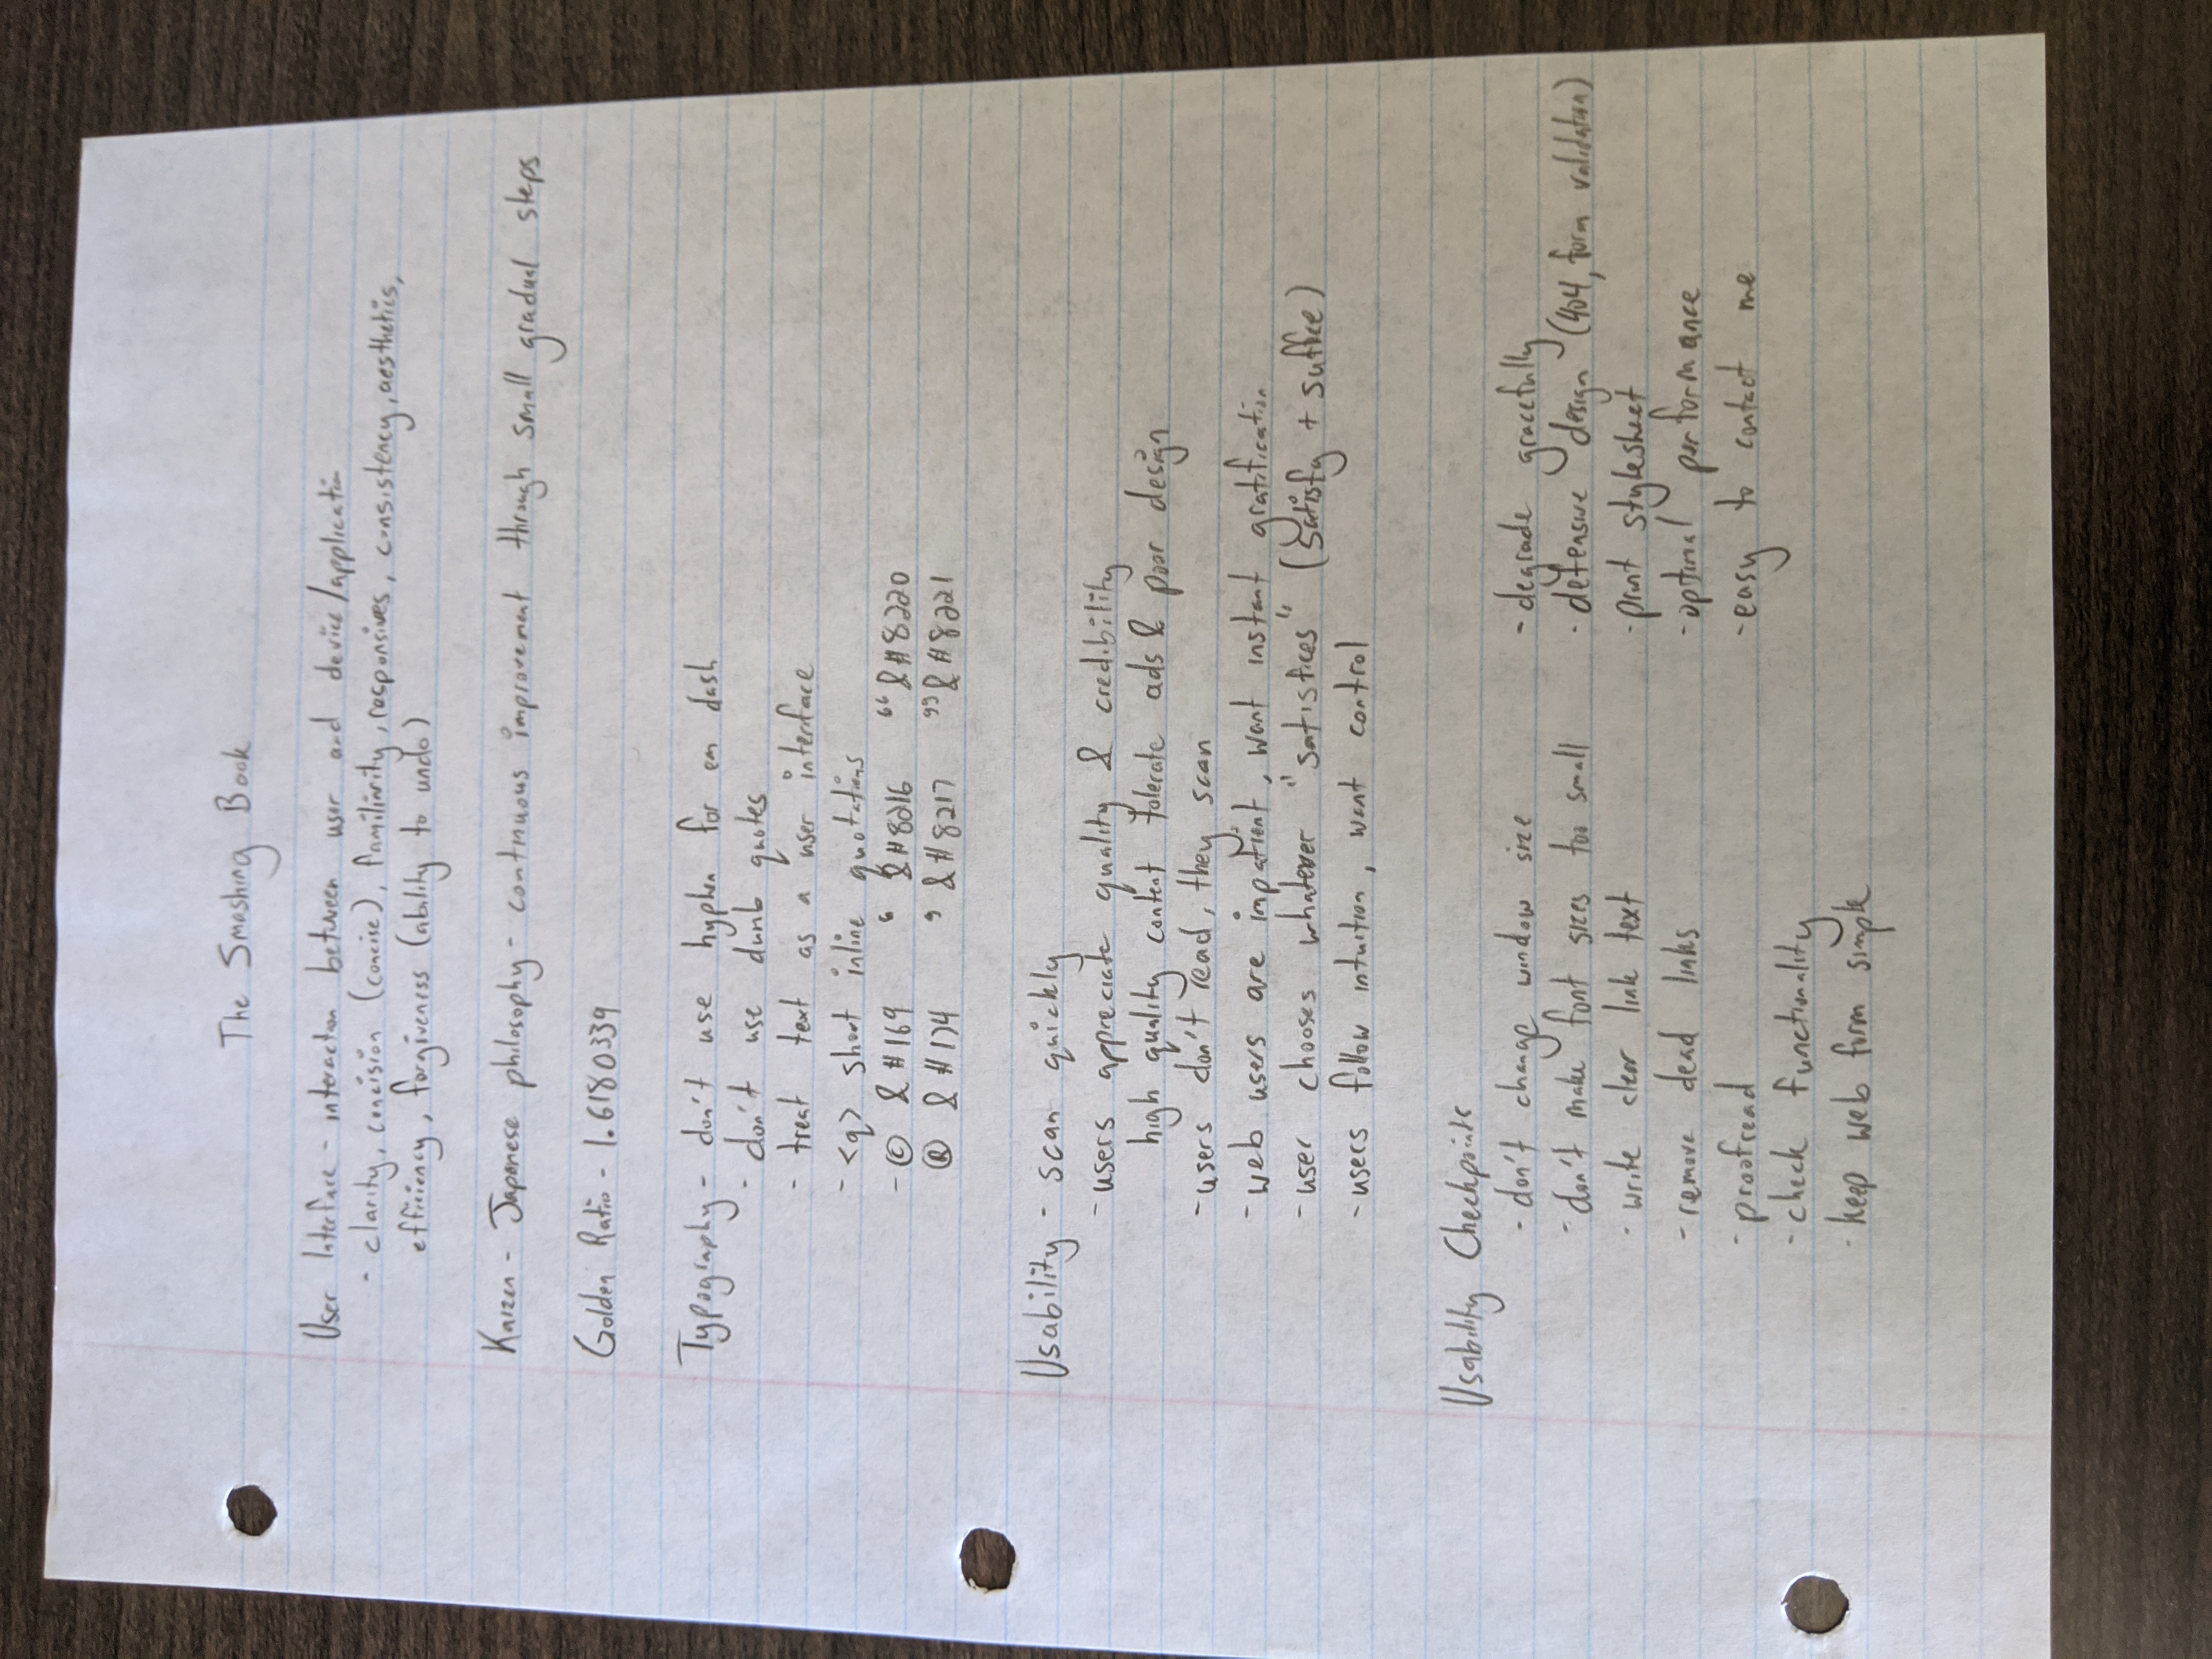 The Smashing Book
User Interface - interaction between user and device/application
- clarity, concision (concise), familiarity, responsives, consistency, aesthetics,
efficiency, forgiveness (ability to undo)
Kaizen - Japanese philosophy - continuous improvement through small gradual steps
Golden Ratio - 1.6180339
Typography - don't use hyphen for em dash
- don't use dumb quotes
- treat text as a user interface
- <q> short inline quotations
- © &#169 ‘ &#8216 “ &#8220
® &#174 ’ &#8217 ” &#8221
Usability - scan quickly
- users appreciate quality & credibility
high quality content tolerate ads & poor design
- users don't read, they scan
- web users are impatient, want instant gratification
- user chooses whatever "satisfices" (satisfy + suffice)
- users follow intuition, want control
Usability Checkpoints
- don't change window size
- don't make font sizes too small
- write clear link text
- remove dead links
- proofread
- check functionality
- keep web form simple
- degrade gracefully
- defensive design (404, form validation)
- print stylesheet
- optimal performance
- easy to contact me